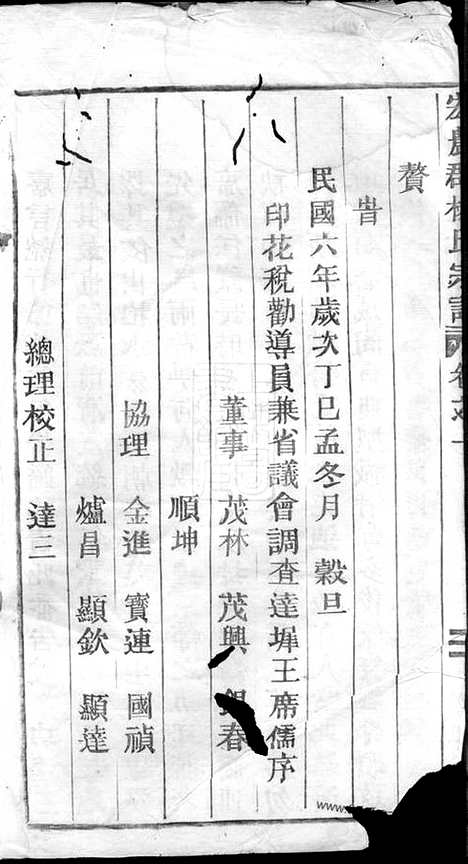 宏農郡楊氏宗譜 卷之一
贅
旹
民國六年歲次丁巳孟冬月 穀旦
印花稅勸導員兼省議會調查達墀王席儒序
董事 茂林 茂興 銀春
順坤
協理 金進 寶連 國禎
爐昌 顯欽 顯達
總理校正 達三